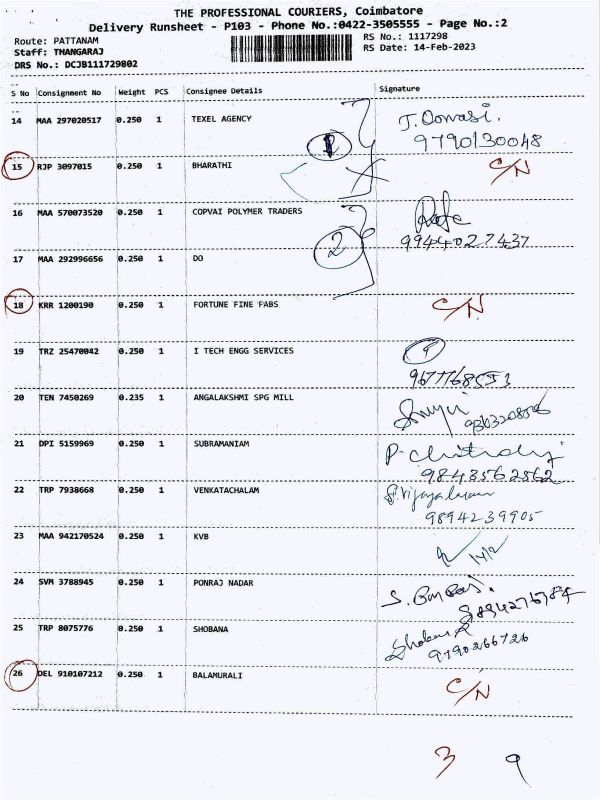 THE PROFESSIONAL COURIERS, Coimbatore
Delivery Runsheet - P103 - Phone No.:0422-3505555 - Page No.:2
Route: PATTANAM RS No.: 1117298
Staff: THANGARAJ RS Date: 14-Feb-2023
DRS No.: DCJB111729802
S No Consignment No Weight PCS Consignee Details Signature
14 MAA 297020517 0.250 1 TEXEL AGENCY
9790130048
1
15 RJP 3097015 0.250 1 BHARATHI C/N
16 MAA 570073520 0.250 1 COPVAI POLYMER TRADERS
9944027437
2
17 MAA 292996656 0.250 1 DO
18 KRR 1200190 0.250 1 FORTUNE FINE FABS C/N
19 TRZ 25470042 0.250 1 I TECH ENGG SERVICES
20 TEN 7450269 0.235 1 ANGALAKSHMI SPG MILL
21 DPI 5159969 0.250 1 SUBRAMANIAM
9843562562
22 TRP 7938668 0.250 1 VENKATACHALAM
9894239905
23 MAA 942170524 0.250 1 KVB 14/2
24 SVM 3788945 0.250 1 PONRAJ NADAR
25 TRP 8075776 0.250 1 SHOBANA Shobana
9790266726
26 DEL 910107212 0.250 1 BALAMURALI C/N
3 9